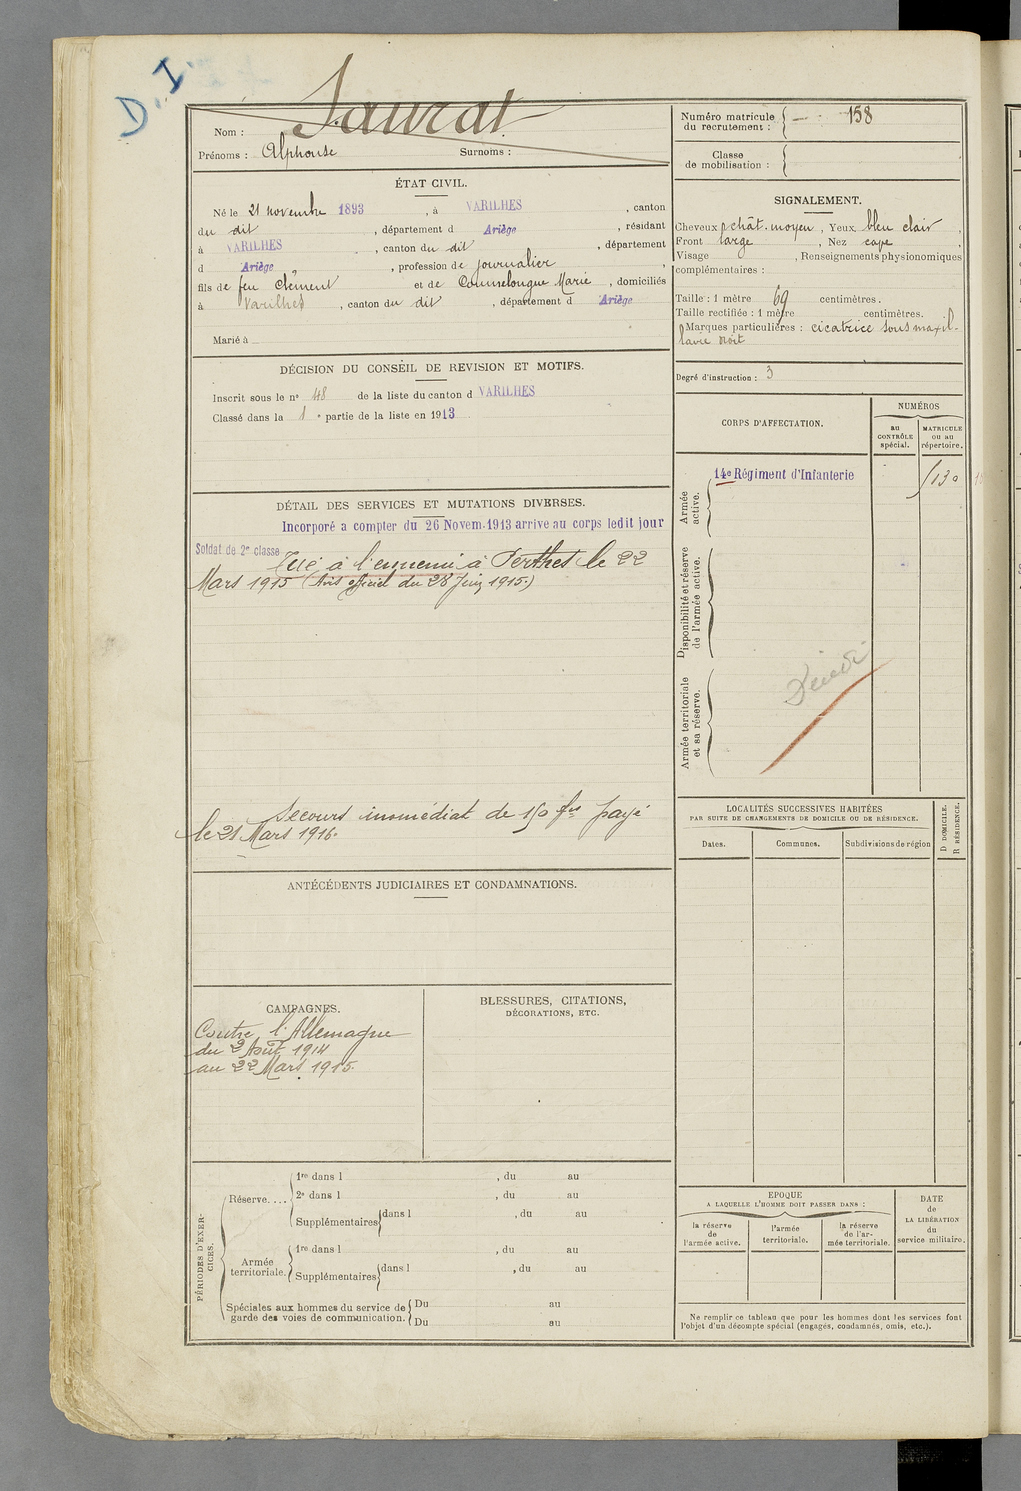 D. I.
Nom : Saurat
Prénoms : Alphonse Surnoms :
Numéro matricule du recrutement : 158
Classe de mobilisation :
ÉTAT CIVIL.
Né le 21 novembre 1893, à VARILHES, canton
du dit, département d Ariège, résidant
à VARILHES, canton du dit, département
d Ariège, profession de journalier,
fils de feu Clément et de Commelongue Marie, domiciliés
à Varilhes, canton du dit, département d Ariège
Marié à
SIGNALEMENT.
Cheveux chât. moyen, Yeux bleu clair,
Front large, Nez cave,
Visage , Renseignements physionomiques
complémentaires :
Taille : 1 mètre 69 centimètres.
Taille rectifiée : 1 mètre centimètres.
Marques particulières : cicatrice sous maxil-
laire droit
Degré d'instruction : 3
DÉCISION DU CONSEIL DE REVISION ET MOTIFS.
Inscrit sous le nº 48 de la liste du canton d VARILHES
Classé dans la 1e partie de la liste en 1913
CORPS D'AFFECTATION.
NUMÉROS
AU CONTRÔLE spécial.
MATRICULE ou au répertoire.
Armée active.
14e Régiment d'Infanterie
130
Disponibilité et réserve de l'armée active.
Armée territoriale et sa réserve.
DÉTAIL DES SERVICES ET MUTATIONS DIVERSES.
Incorporé a compter du 26 Novem. 1913 arrive au corps ledit jour
Soldat de 2e classe
Tué à l'ennemi à Perthes le 22
Mars 1915 (Avis officiel du 28 Juin 1915.)
Secours immédiat de 150 frs payé
le 21 Mars 1916.
LOCALITÉS SUCCESSIVES HABITÉES
PAR SUITE DE CHANGEMENTS DE DOMICILE OU DE RÉSIDENCE.
Dates.
Communes.
Subdivisions de région
D DOMICILE.
R RÉSIDENCE.
ANTÉCÉDENTS JUDICIAIRES ET CONDAMNATIONS.
CAMPAGNES.
Contre l'Allemagne
du 2 Août 1914
au 22 Mars 1915.
BLESSURES, CITATIONS,
DÉCORATIONS, ETC.
PÉRIODES D'EXER-
CICES.
Réserve....
1re dans l , du au
2e dans l , du au
Supplémentaires dans l , du au
Armée territoriale.
1re dans l , du au
Supplémentaires dans l , du au
Spéciales aux hommes du service de
garde des voies de communication.
Du au
Du au
EPOQUE
A LAQUELLE L'HOMME DOIT PASSER DANS :
la réserve de l'armée active.
l'armée territoriale.
la réserve de l'ar-
mée territoriale.
DATE
de
LA LIBÉRATION
du
service militaire.
Ne remplir ce tableau que pour les hommes dont les services font
l'objet d'un décompte spécial (engagés, condamnés, omis, etc.).